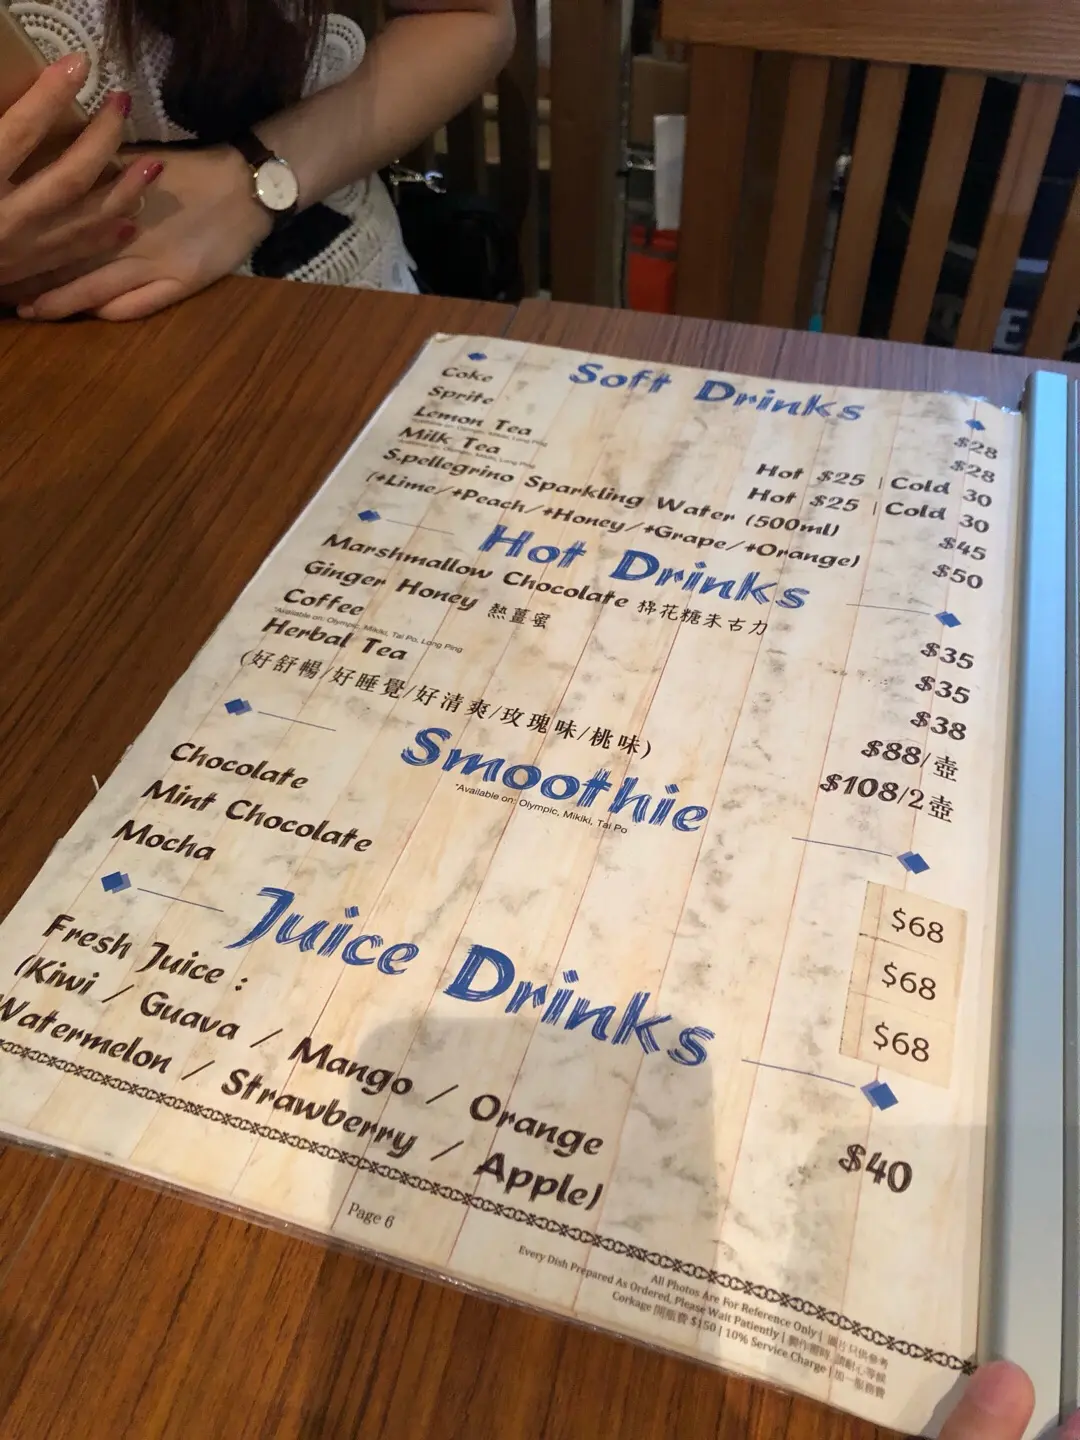 Soft Drinks
Coke $28
Sprite $28
Lemon Tea Hot $25 | Cold 30
*Available on: Olympic, Mikiki, Long Ping
Milk Tea Hot $25 | Cold 30
*Available on: Olympic, Mikiki, Long Ping
S.pellegrino Sparkling Water (500ml) $45
(+Lime/+Peach/+Honey/+Grape/+Orange) $50
Hot Drinks
Marshmallow Chocolate 棉花糖朱古力 $35
Ginger Honey 熱薑蜜 $35
Coffee $38
*Available on: Olympic, Mikiki, Tai Po, Long Ping
Herbal Tea $88/壺
(好舒暢/好睡覺/好清爽/玫瑰味/桃味) $108/2壺
Smoothie
*Available on: Olympic, Mikiki, Tai Po
Chocolate $68
Mint Chocolate $68
Mocha $68
Juice Drinks
Fresh Juice :
(Kiwi / Guava / Mango / Orange $40
Watermelon / Strawberry / Apple)
Page 6
All Photos Are For Reference Only | 圖片只供參考
Every Dish Prepared As Ordered, Please Wait Patiently | 製作需時, 請耐心等候
Corkage 開瓶費 $150 | 10% Service Charge | 加一服務費